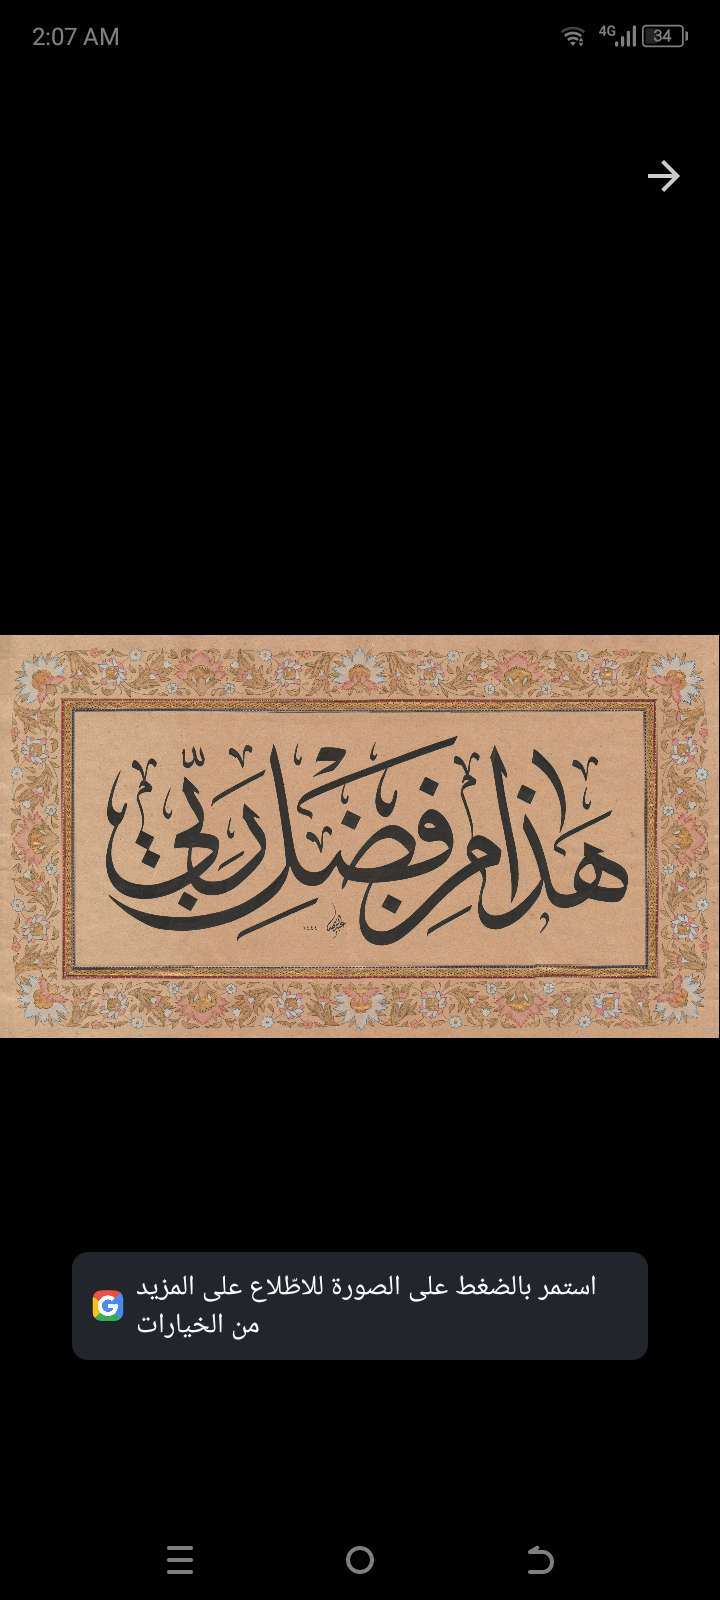 2:07 AM
4G
34
هَذَا مِن فَضْلِ رَبِّي
١٤٤٤
استمر بالضغط على الصورة للاطّلاع على المزيد
من الخيارات